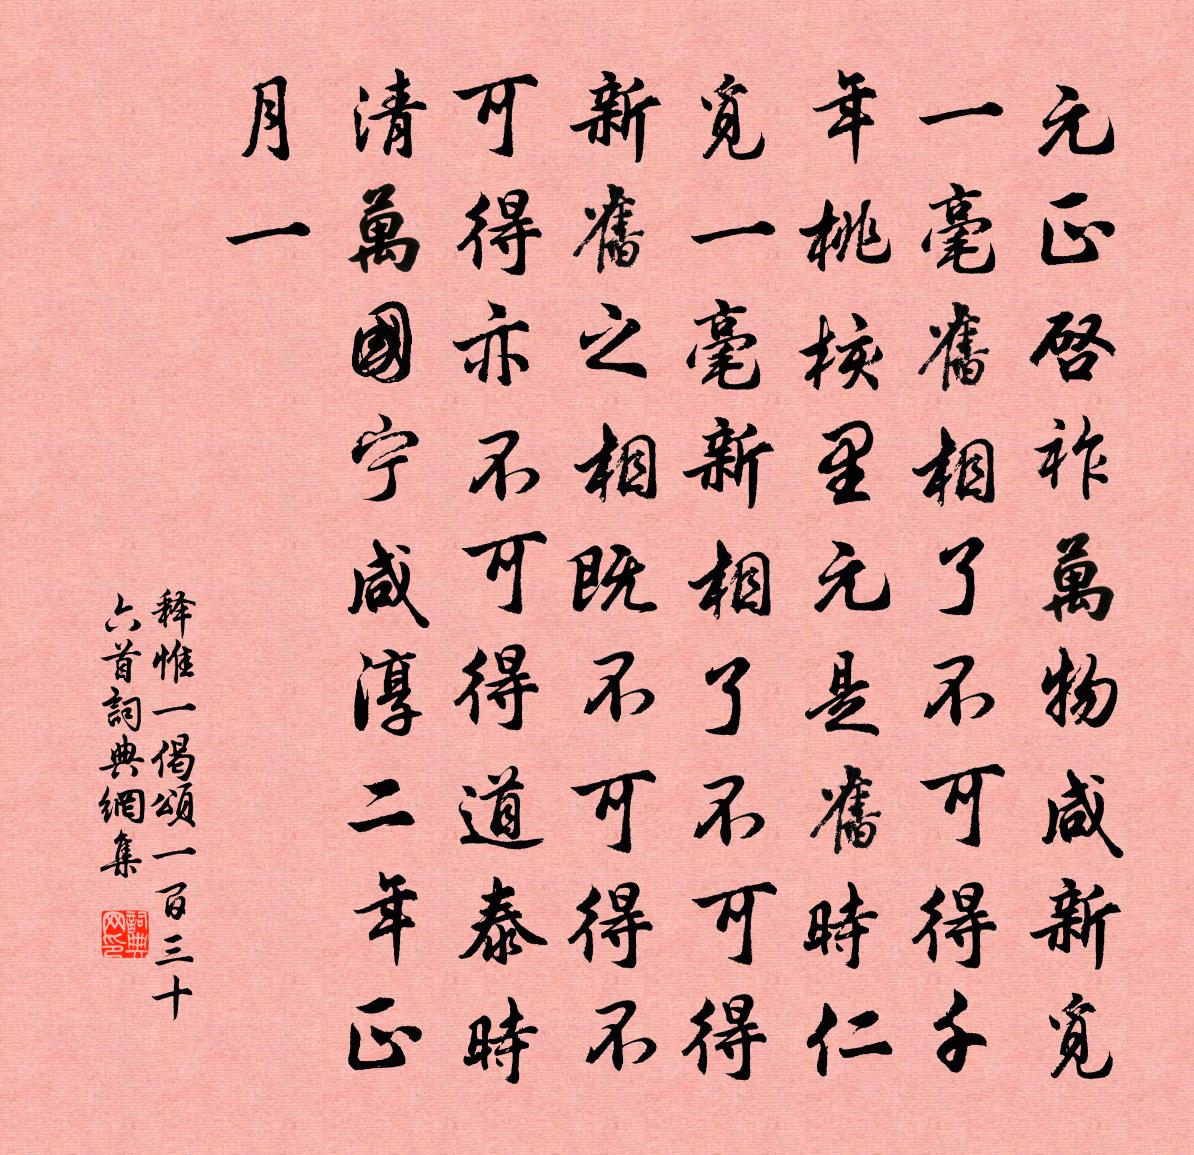 元正啓祚萬物咸新覓
一毫舊相了不可得千
年桃核里元是舊時仁
覓一毫新相了不可得
新舊之相既不可得不
可得亦不可得道泰時
清萬國宁咸淳二年正
月一
释惟一偈頌一百三十
六首詞典網集
詞典
网印